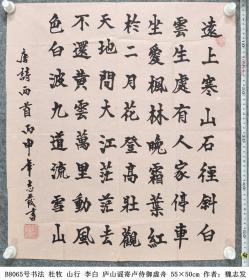 遠上寒山石徑斜白
雲生處有人家停車
坐愛楓林晚霜葉紅
於二月花登高壯觀
天地間大江茫茫去
不還黃雲萬里動風
色白波九道流雪山
唐詩兩首丙申年志發書
B8065号书法 杜牧 山行 李白 庐山谣寄卢侍御虚舟 55×50cm 作者：魏志发